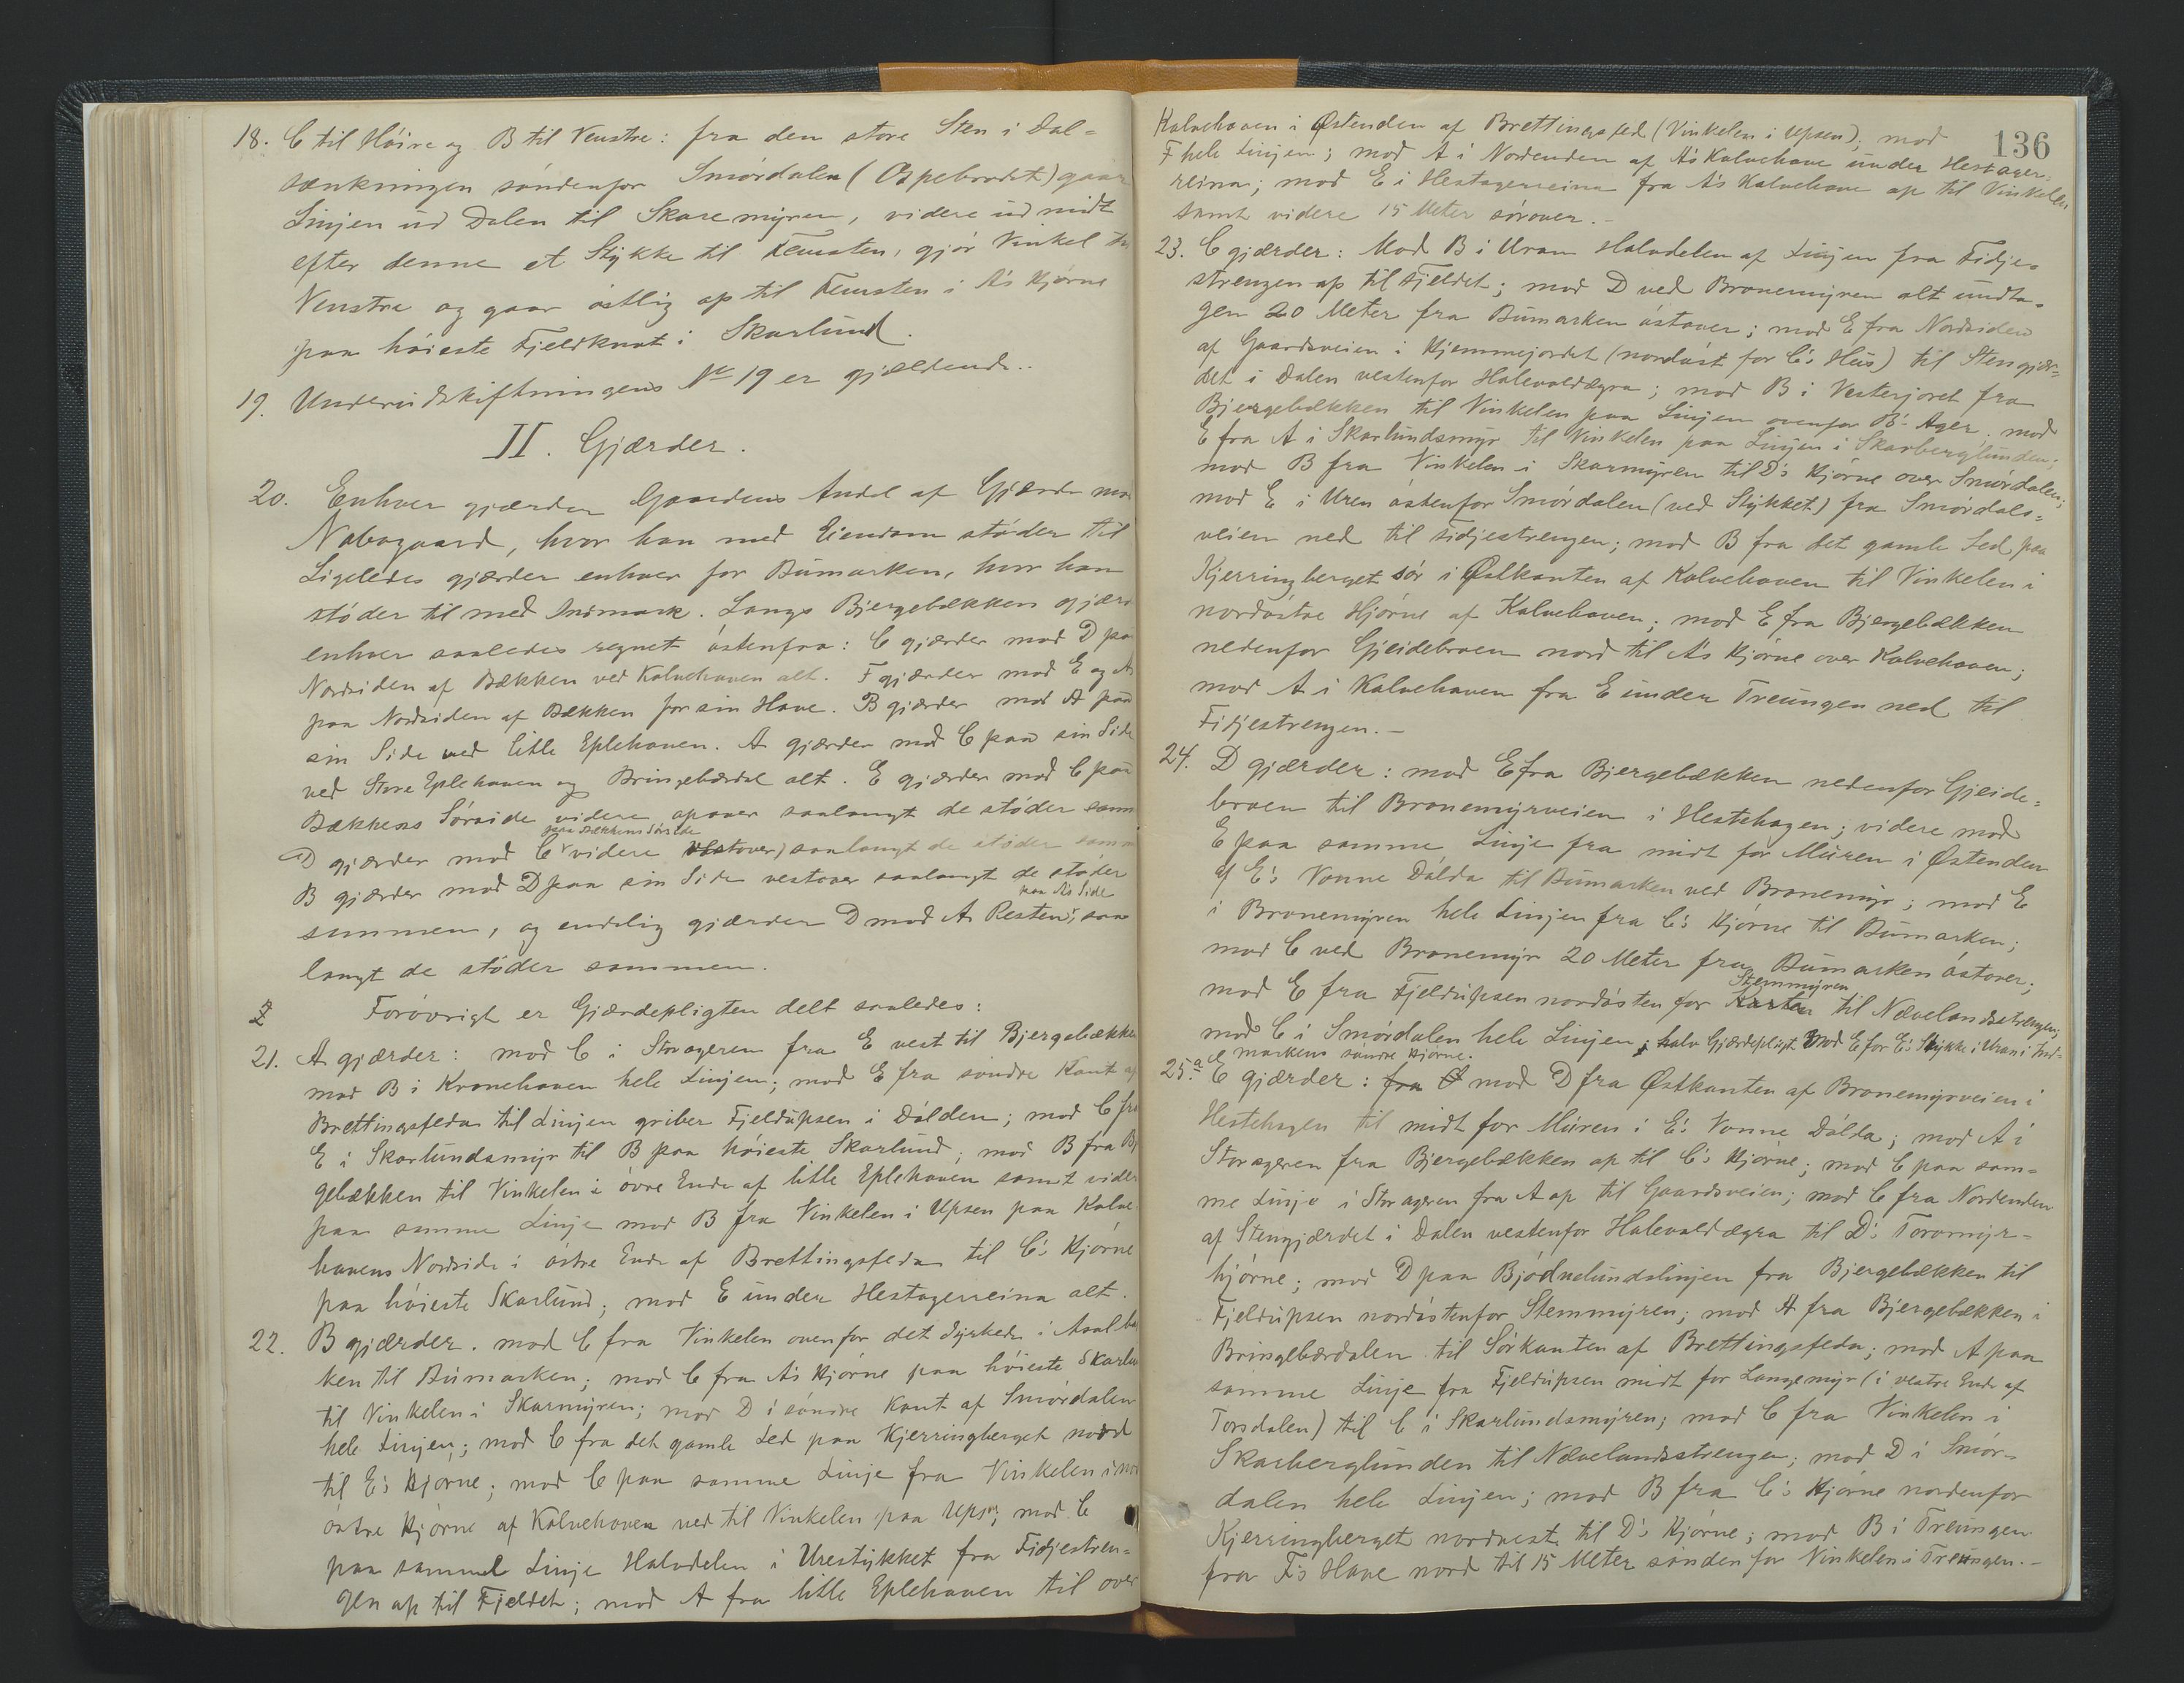 18. C til Höire og B til Venstre: fra den store Sten i Dal-
sænkningen söndenfor Smördalen (Ospebrodet) gaar
Linjen ud Dalen til Skaremyren, videre ud midt
efter denne et Stykke til Temsten, gjör Vinkel til
Venstre og gaar östlig op til Temsten i A's Hjörne
paa höieste Fjeldknat i Skarlund.
19. Underudskiftningens No 19 er gjældende..
II. Gjærder.
20. Enhver gjærder Gaardens Andel af Gjærde mod
Nabogaard, hvor han med Eiendom stöder til
Ligeledes gjærder enhver for Bumarken, hvor han
stöder til med Indmark. Langs Bjergebækken gjærd
enhver saaledes regnet östenfra: C gjærder mod D paa
Nordsiden af Bækken ved Kalvehaven alt. F gjærder mod E og A
paa Nordsiden af Bækken for sin Have. B gjærder mod A paa
sin Side ved litle Eplehaven. A gjærder mod C paa sin Side
ved Store Eplehaven og Bringebærdal alt. E gjærder mod C paa
Bækkens Sörside videre opover saalangt de stöder samm
paa Bækkens Sörside
D gjærder mod C videre vestover) saalangt de stöder samm
B gjærder mod D paa sin Side vestover saalangt de stöder
paa A's Side
sammen, og endelig gjærder D mod A Resten, saa
langt de stöder sammen.
Forövrigt er Gjærdepligten delt saaledes:
21. A gjærder: mod C i Storageren fra E vest til Bjergebækken
mod B i Kronehaven hele Linjen; mod E fra söndre Kant af
Brettingsfeda til Linjen griber Fjeldupsen i Dölden; mod C fra
E i Skarlundsmyr til B paa höieste Skarlund; mod B fra Bj
gebækken til Vinkelen i övre Ende af litle Eplehaven samt vider
paa samme Linje mod B fra Vinkelen i Upsen paa Kalve-
havens Nordside i östre Ende af Brettingsfeda til C's Hjörne
paa höieste Skarlund; mod E under Hestagerreina alt.
22. B gjærder. mod C fra Vinkelen ovenfor det dyrkede i Aaalbak
ken til Bumarken; mod C fra A's Hjörne paa höieste Skarlun
til Vinkelen i Skarmyren; mod D i söndre Kant af Smördalen
hele Linjen; mod C fra det gamle Led paa Kjerringberget nord
til E's Hjörne; mod C paa samme Linje fra Vinkelen i nor
östre Hjörne af Kalvehaven ned til Vinkelen paa Upsen; mod C
paa samme Linje Halvdelen i Urestykket fra Fidjestren-
gen op til Fjeldet; mod A fra litle Eplehaven til over
136
Kalvehaven i Østenden af Brettingsfed (Vinkelen i Upsen); mod
F hele Linjen; mod A i Nordenden af A's Kalvehave under Hestager-
reina; mod E i Hestagerreina fra A's Kalvehave op til Vinkelen
samt videre 15 Meter sörover.-
23. C gjærder: Mod B i Uran Halvdelen af Linjen fra Fidje-
strengen op til Fjeldet; mod D ved Bronemyren alt undta-
gen 20 Meter fra Bumarken östover; mod E fra Nordsiden
af Gaardsveien i Hjemmejordet (nordöst for C's Hus) til Stengjær-
det i Dalen vestenfor Halevoldægra; mod B i Vesterjoret fra
Bjergebækken til Vinkelen paa Linjen ovenfor B's Ager; mod
E fra A i Skarlundsmyr til Vinkelen paa Linjen i Skarberglunden;
mod B fra Vinkelen i Skarmyren til D's Hjörne over Smördalen;
mod E i Uren östenfor Smördalen (ved Stykket) fra Smördals-
veien ned til Fidjestrengen; mod B fra det gamle Led paa
Kjerringberget sör i Østkanten af Kalvehaven til Vinkelen i
nordöstre Hjörne af Kalvehaven; mod E fra Bjergebækken
nedenfor Gjeidebroen nord til A's Hjörne over Kalvehaven;
mod A i Kalvehaven fra E under Treungen ned til
Fidjestrengen.-
24. D gjærder: mod E fra Bjergebækken nedenfor Gjeide-
broen til Bronemyrveien i Hestehagen; videre mod
E paa samme Linje fra midt for Muren i Østenden
af E's Vonne Dölda til Bumarken ved Bronemyr; mod E
i Bronemyren hele Linjen fra C's Hjörne til Bumarken;
mod C ved Bronemyr 20 Meter fra Bumarken östover;
Stemmyren
mod E fra Fjeldupsen nordösten for Karten til Nævelandsstrengen;
mod C i Smördalen hele Linjen; halv Gjærdepligt mod E for E's Stykke i Uran i Ind-
markens söndre Hjörne.
25.a E gjærder: fra C mod D fra Østkanten af Bronemyrveien i
Hestehagen til midt for Muren i E's Vonne Dölda; mod A i
Storageren fra Bjergebækken op til C's Hjörne; mod C paa sam-
me Linje i Storageren fra A op til Gaardsveien; mod C fra Nordenden
af Stengjærdet i Dalen vestenfor Halevoldægra til D's Toromyr-
hjörne; mod D paa Bjödnelundslinjen fra Bjergebækken til
Fjeldupsen nordöstenfor Stemmyren; mod A fra Bjergebækken i
Bringebærdalen til Sörkanten af Brettingsfeda; mod A paa
samme Linje fra Fjeldupsen midt for Langemyr (i vestre Ende af
Torsdalen) til C i Skarlundsmyren; mod C fra Vinkelen i
Skarberglunden til Nævelandsstrengen; mod D i Smör-
dalen hele Linjen; mod B fra C's Hjörne nordenfor
Kjerringberget nordvest til D's Hjörne; mod B i Treungen
fra F's Have nord til 15 Meter sönden for Vinkelen i Treungen.-